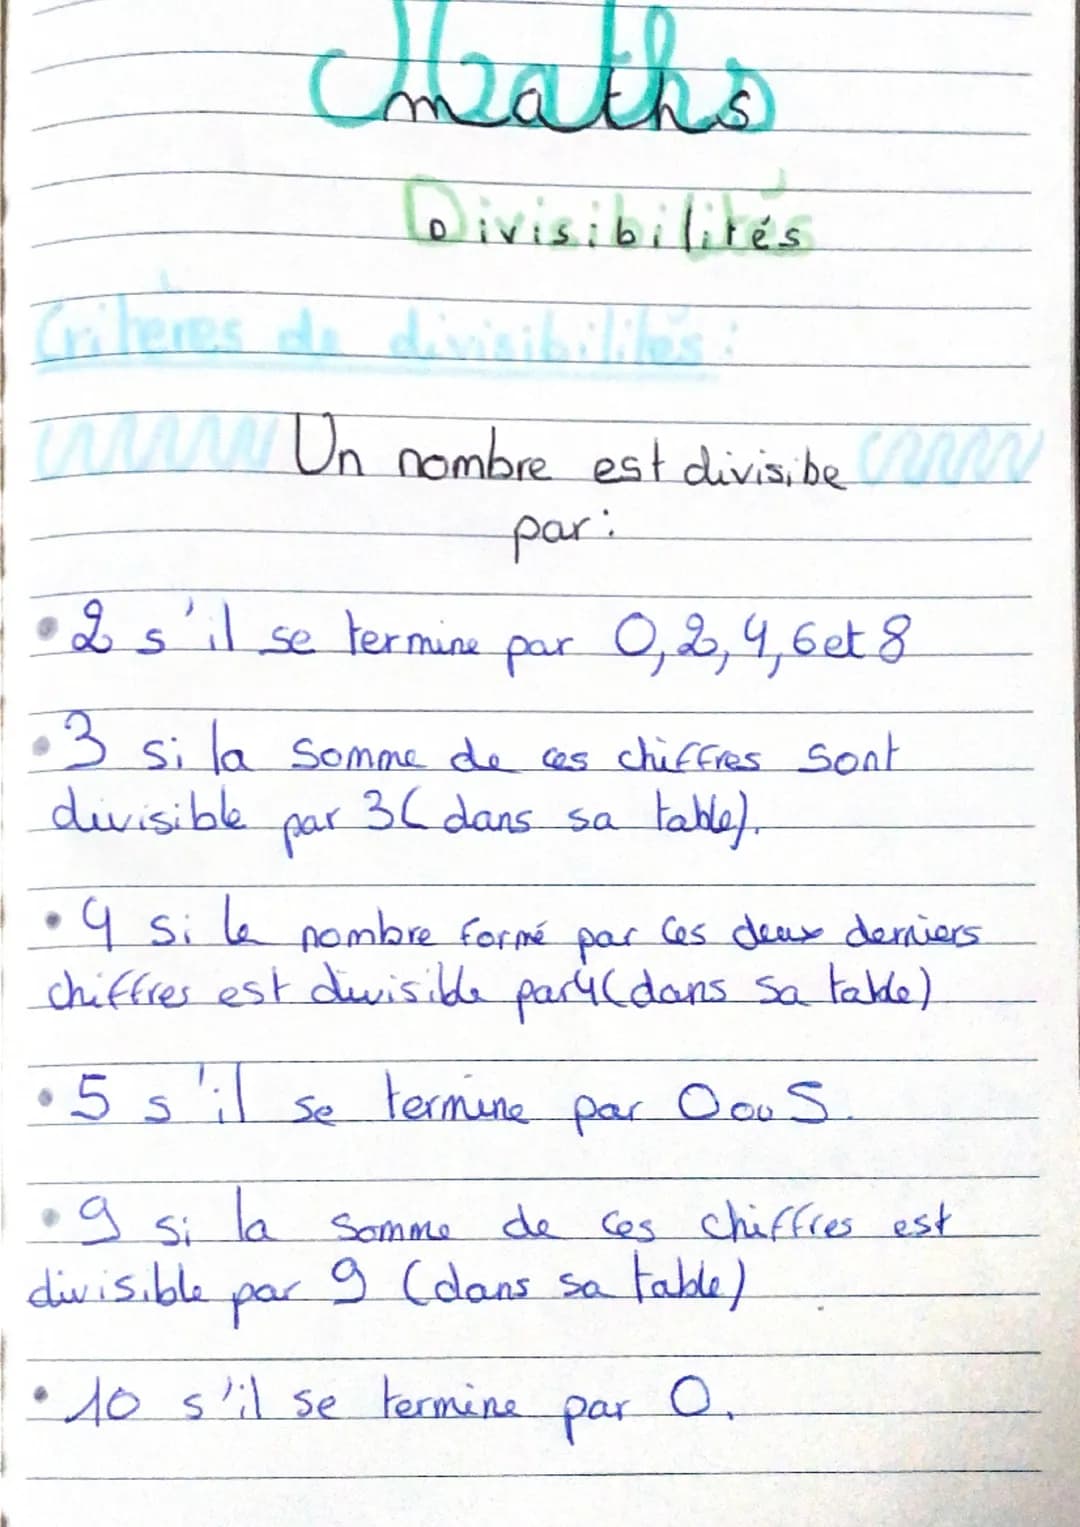 Maths
Divisibilités
Critères de divisibilités :
Un nombre est divisibe
par :
• 2 s'il se termine par 0, 2, 4, 6 et 8
• 3 si la somme de ces chiffres sont
divisible par 3 ( dans sa table).
• 4 si le nombre formé par ces deux derniers
chiffres est divisible par 4 (dans sa table)
• 5 s'il se termine par 0 ou 5.
• 9 si la somme de ces chiffres est
divisible par 9 (dans sa table)
• 10 s'il se termine par 0.